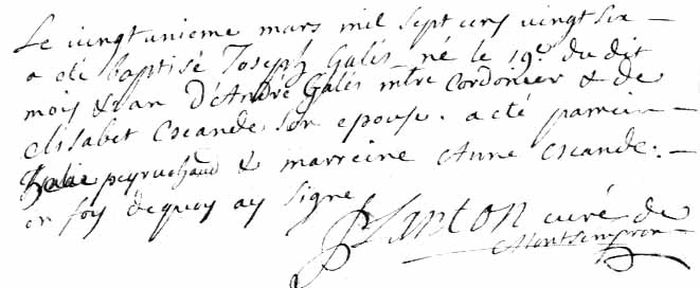 Le vingtunieme mars mil sept cens vingt six
a été baptisé Joseph Galés né le 19e du dit
mois & an D'André Galés mtre cordonier & de
elisabet escande son epouse. a eté parrein
helie peyruchaud & marreine Anne escande.
en foy dequoy ay signé
Lanton curé de
Montsempron